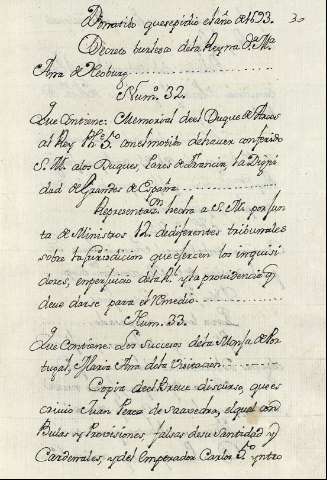 Donatibo que se pidio el año de 1693. 30
Decreto burlesco de la Reyna Dª Mª
Ana de Neoburg
Numº 32.
Que Contiene: Memorial de el Duque de Arcos
al Rey Ph.º 5.º con el motibo de haver conferido
S. M. a los Duques, Pares de Francia, la Digni-
dad de Grandes de España
Representazon hecha a S. M. por Jun-
ta de Ministros 12. de diferentes tribunales
sobre la Jurisdicion que ejercen los inquisi-
dores, en perjuicio de la Rl. y la providencia q
deve darse para el Remedio
Num. 33.
Que Contiene: Los Sucesos de la Monja de Por-
tugal, Maria Ana de la Visitacion
Copia de el Breve discurso, que es-
crivio Juan Perez de Saavedra, el qual con
Bulas y Provisiones falsas de su Santidad y
Cardenales, y del Emperador Carlos 5.º yntro